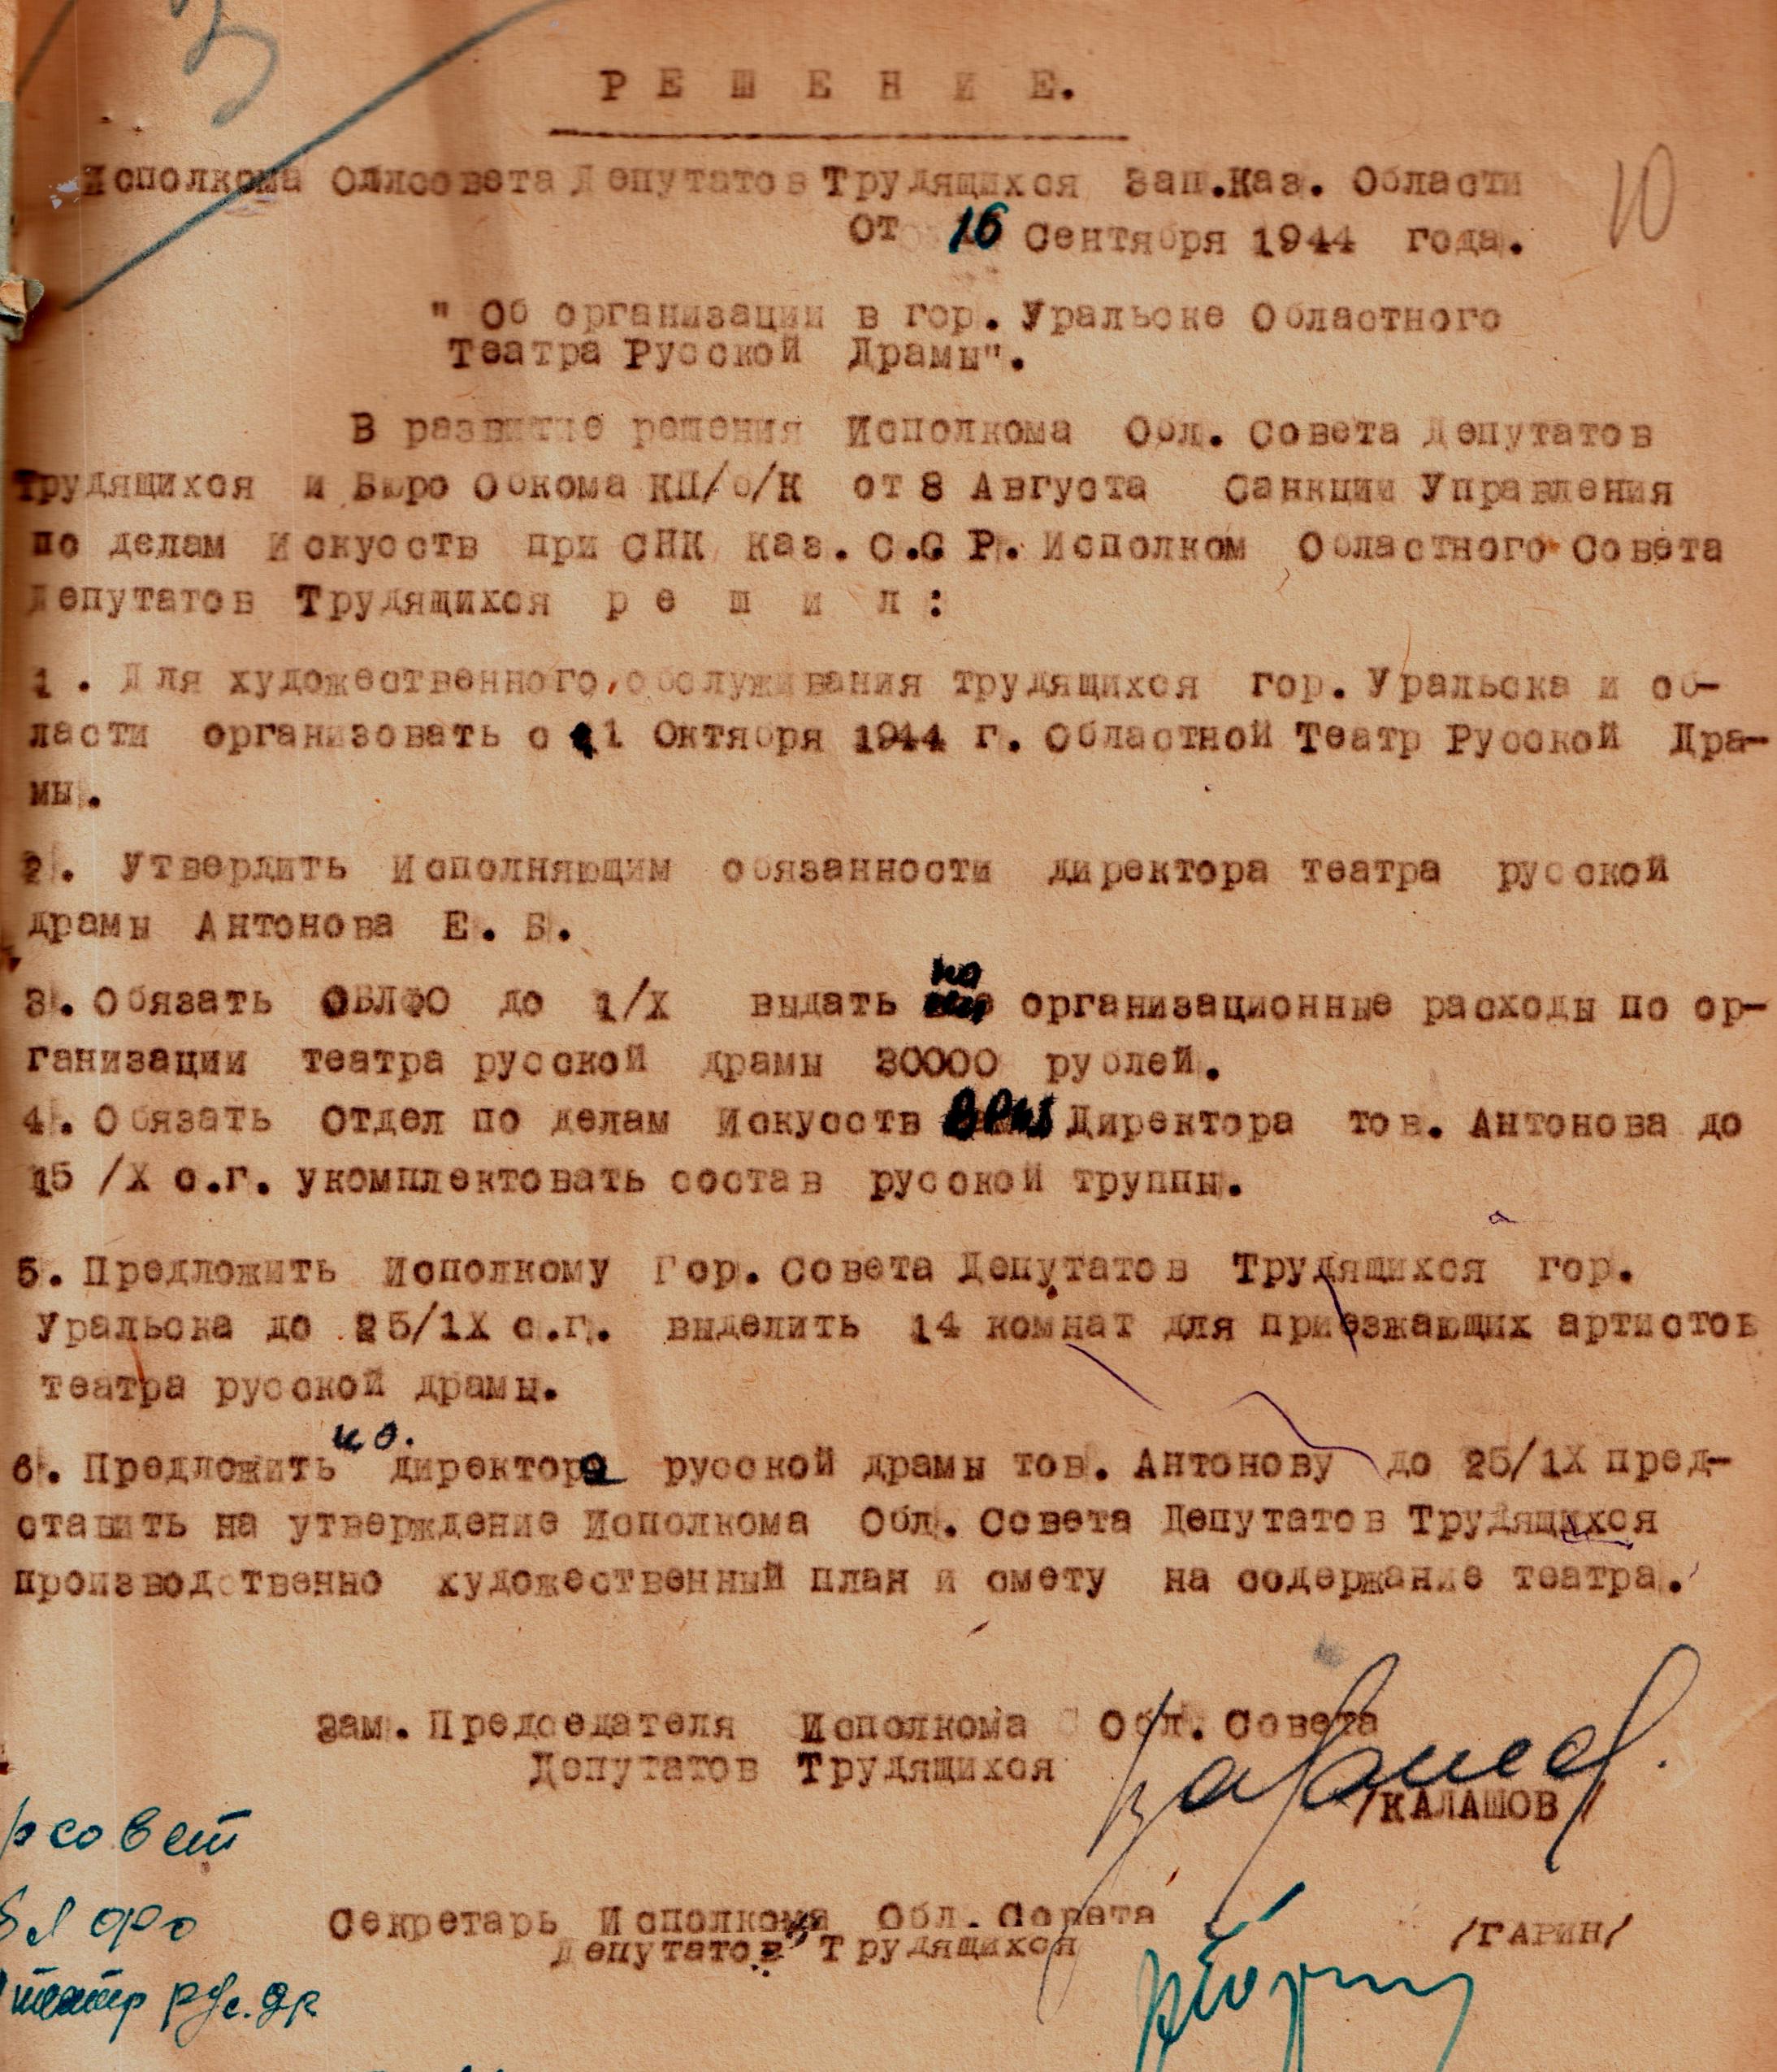 3
Р Е Ш Е Н И Е.
Исполкома Облсовета Депутатов Трудящихся Зап.Каз. Области
10
От 16 Сентября 1944 года.
" Об организации в гор. Уральске Областного
Театра Русской Драмы".
В развитие решения Исполкома Обл. Совета Депутатов
Трудящихся и Бюро Обкома КП/б/К от 8 Августа Санкции Управления
по делам Искусств при СНК Каз. С.С Р. Исполком Областного Совета
Депутатов Трудящихся р е ш и л :
1 . Для художественного обслуживания трудящихся гор. Уральска и об-
ласти организовать с 1 Октября 1944 г. Областной Театр Русской Дра-
мы.
2. Утвердить Исполняющим обязанности директора театра русской
драмы Антонова Е. Б.
3. Обязать ОБЛФО до 1/X выдать на организационные расходы по ор-
ганизации театра русской драмы 30000 рублей.
4. Обязать Отдел по делам Искусств Директора тов. Антонова до
15 /X с.г. укомплектовать состав русской труппы.
5. Предложить Исполкому Гор. Совета Депутатов Трудящихся гор.
Уральска до 25/1X с.г. выделить 14 комнат для приезжающих артистов
театра русской драмы.
6. Предложить ио. директора русской драмы тов. Антонову до 25/1X пред-
ставить на утверждение Исполкома Обл. Совета Депутатов Трудящихся
производственно художественный план и смету на содержание театра.
Зам. Председателя Исполкома Обл. Совета
Депутатов Трудящихся
/КАЛАШОВ/
рсовет
бл фо
Секретарь Исполкома Обл. Совета
Депутатов Трудящихся
/ГАРИН/
театр рус. др